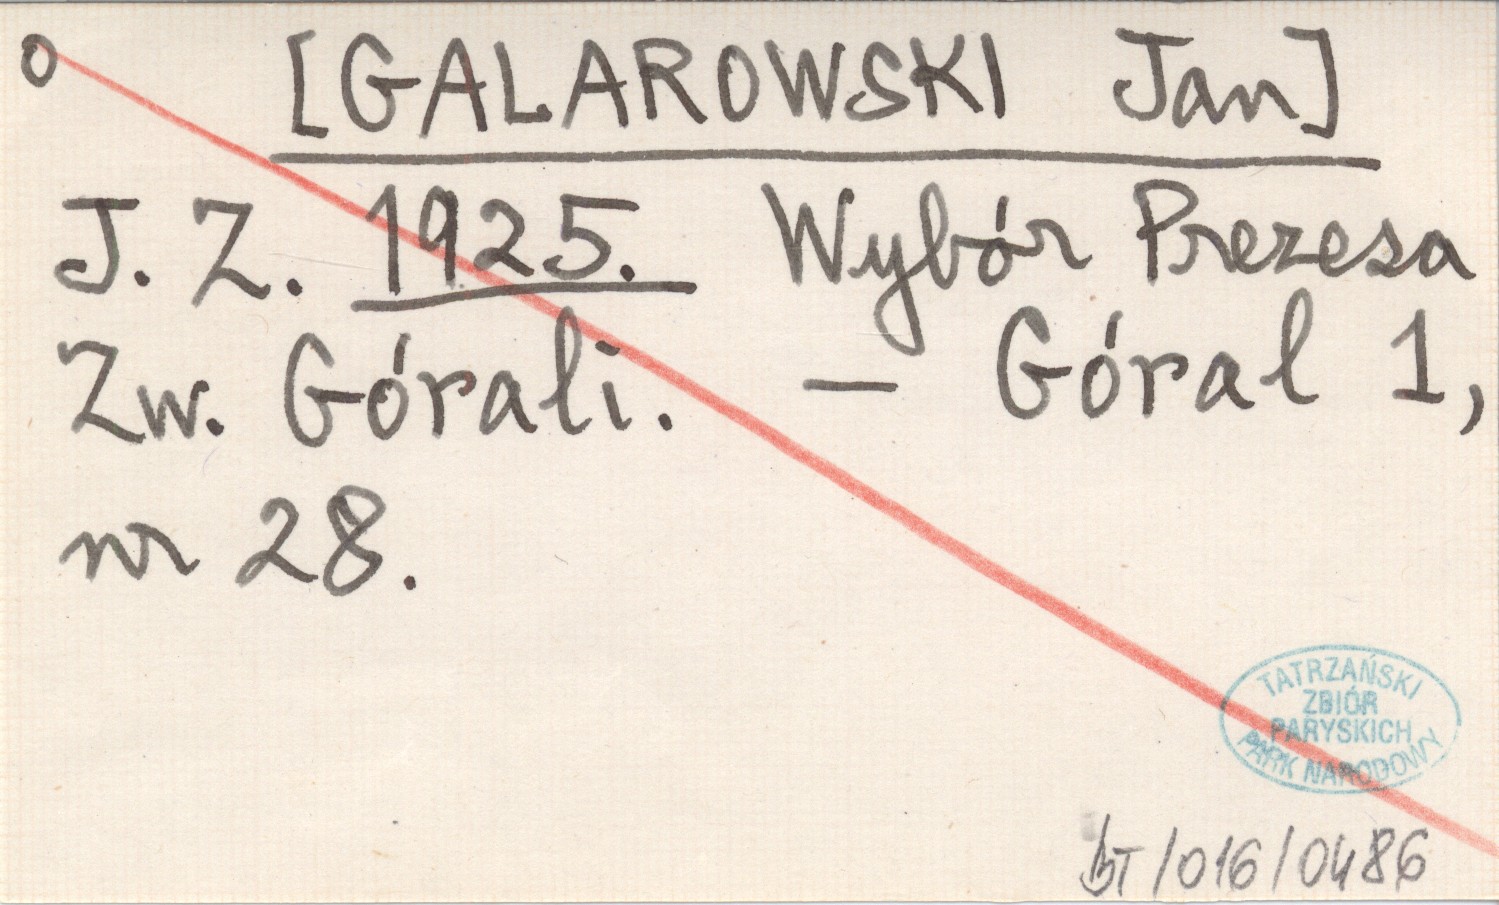 o [GALAROWSKI Jan]
J. Z. 1925. Wybór Prezesa
Zw. Górali. — Góral 1,
nr 28.
TATRZAŃSKI
ZBIÓR
PARYSKICH
PARK NARODOWY
BT/016/0486